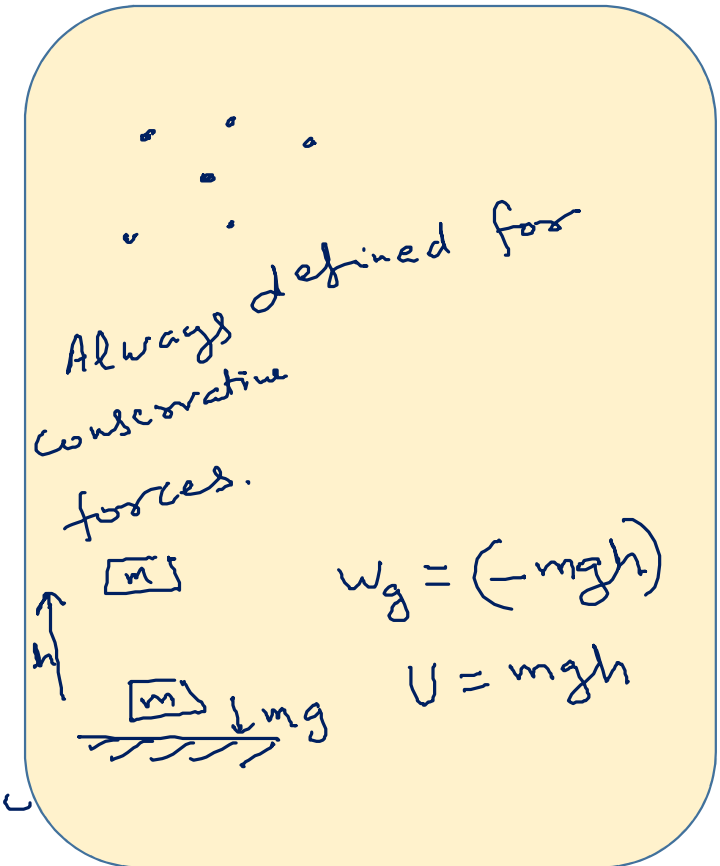 Always defined for
conservative
forces.
m
h
m
mg
Wg = (-mgh)
U = mgh